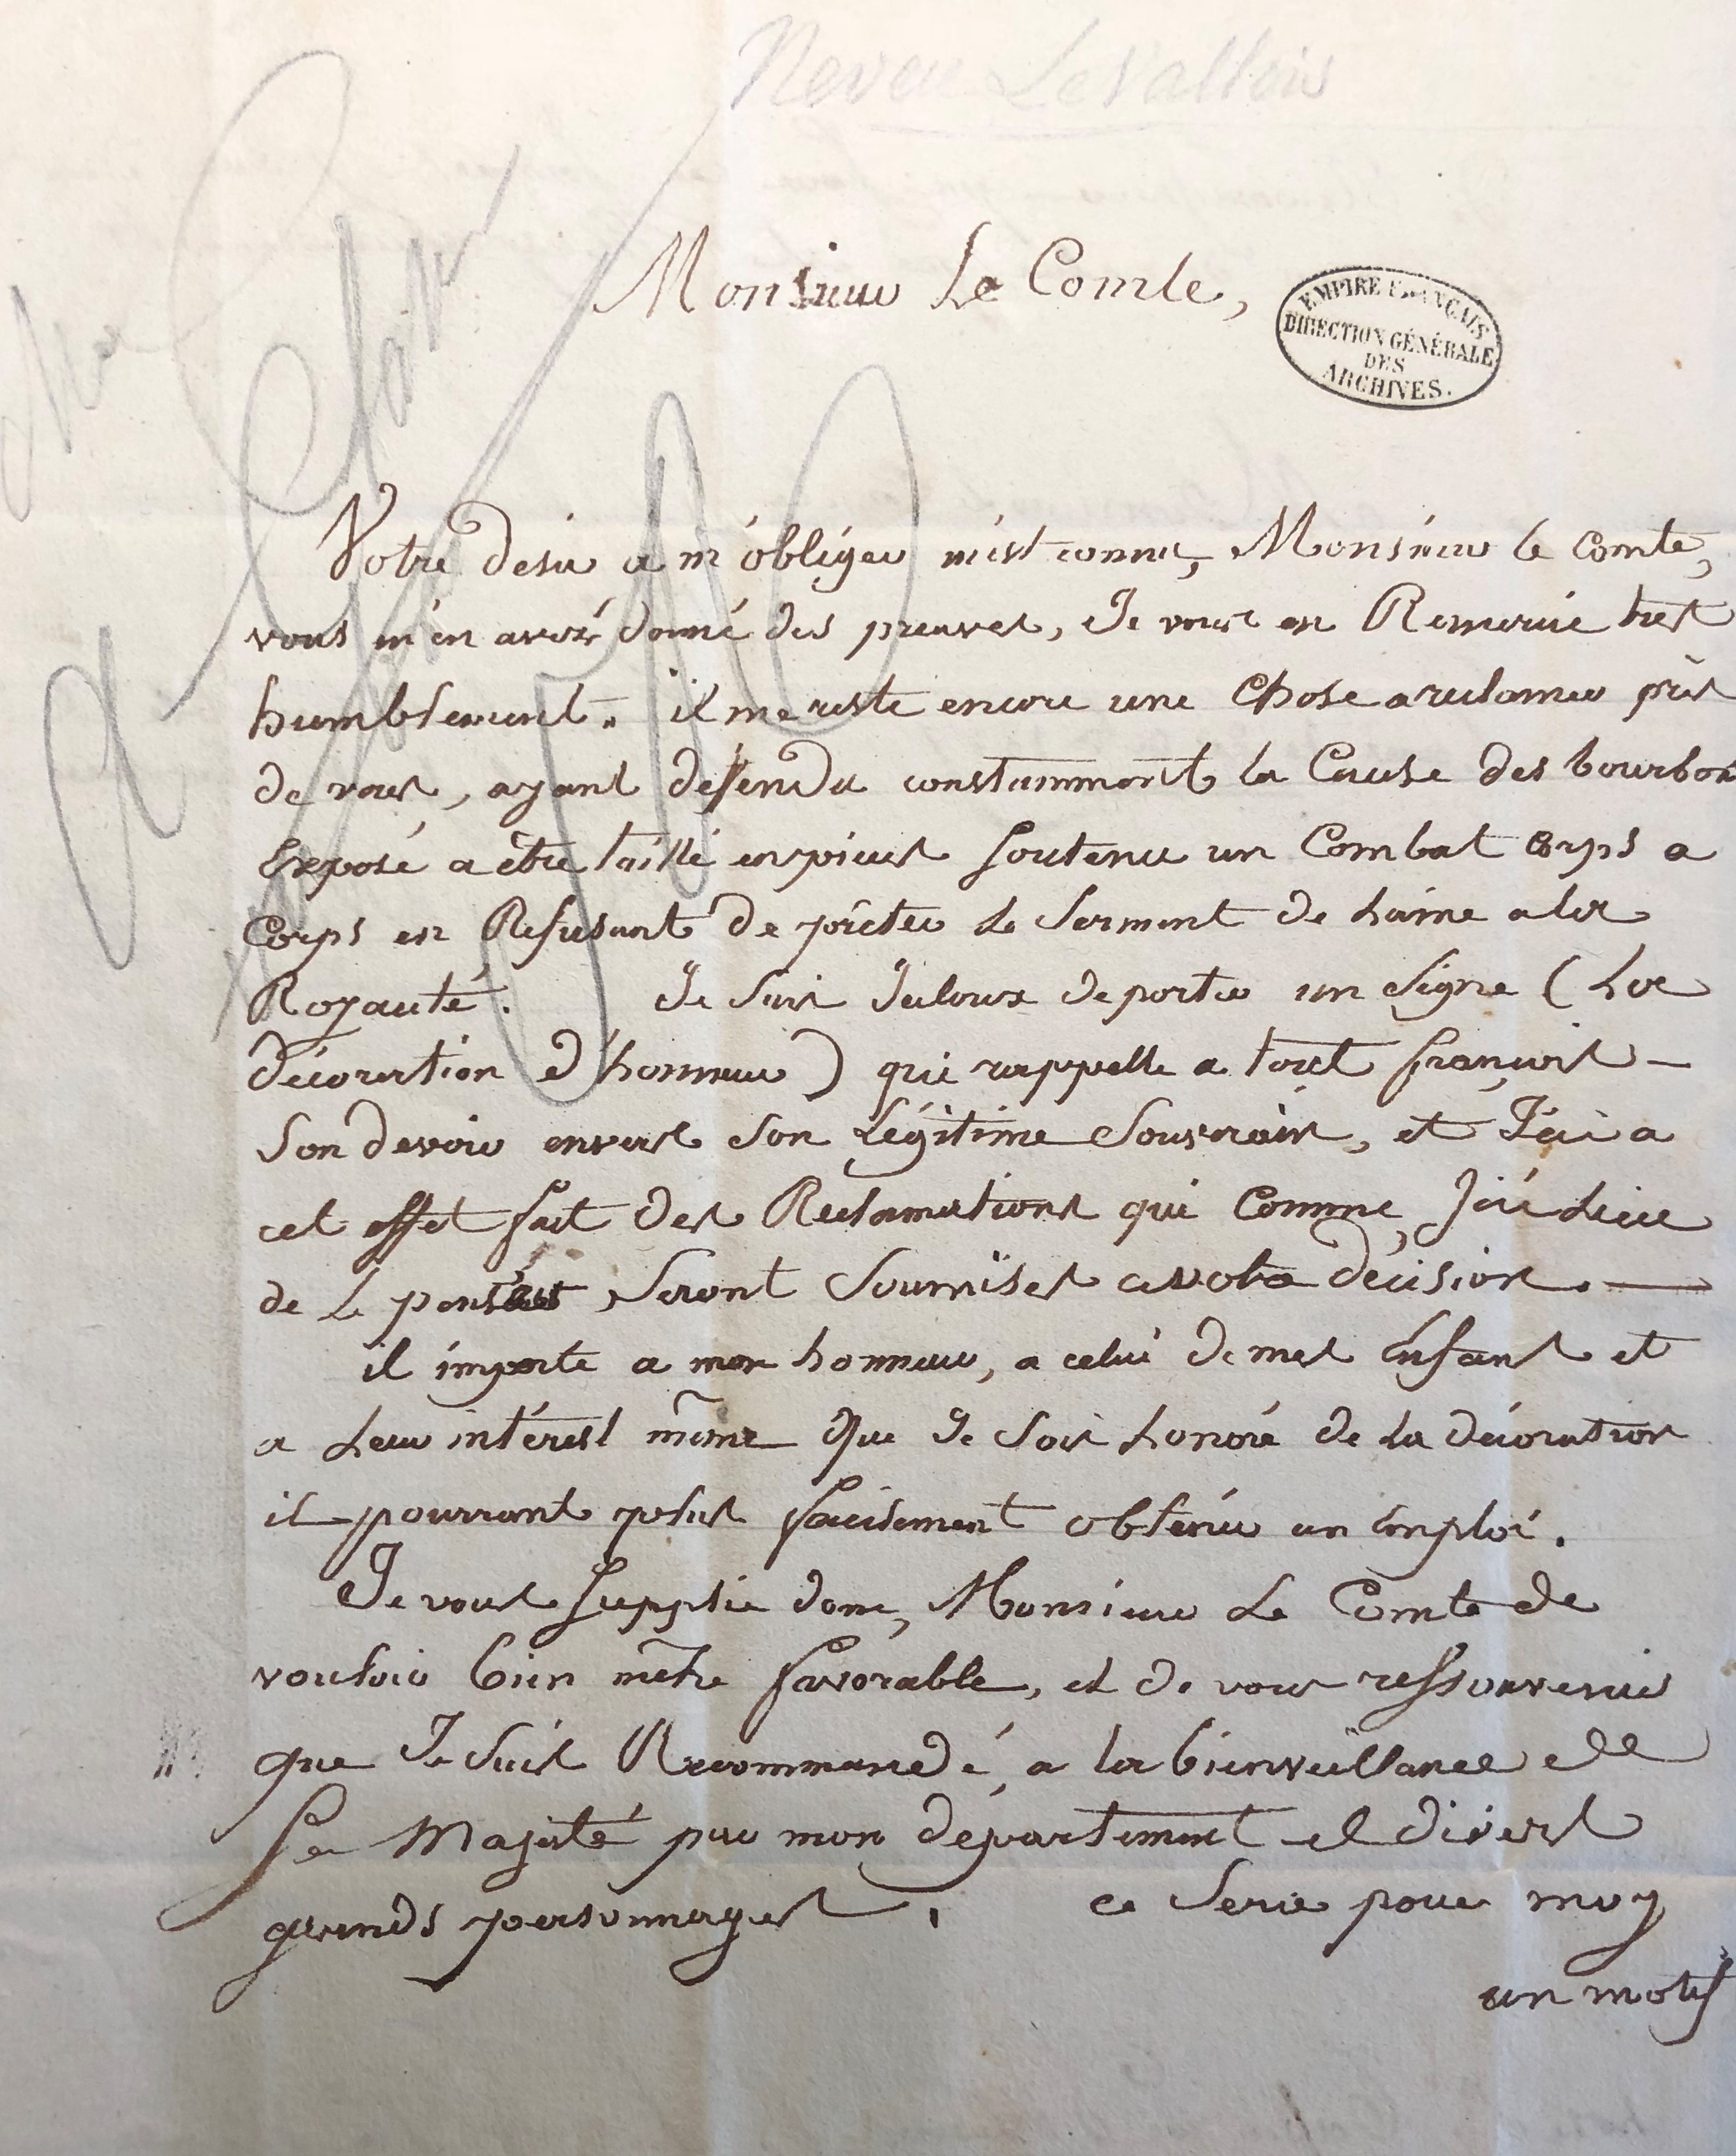 Neveu Levallois
Monsieur Le Comte,
EMPIRE FRANÇAIS
DIRECTION GÉNÉRALE
DES
ARCHIVES.
Votre desir a m'obliger m'est connu, Monsieur le Comte,
vous m'en avez donné des preuves, Je vous en Remercie tres
humblement. il me reste encore une Chose a reclamer près
de vous, ayant defendu constamment la Cause des bourbon
Exposé a être taillé en pieces soutenu un Combat corps a
Corps en Refusant de prêter Le Serment de haine a la
Royauté. Je suis Jaloux de porter un Signe (La
décoration d'honneur) qui rappelle a tout françois -
Son devoir envers Son Légitime Souverain, et J'ai a
cet effet fait des Reclamations qui Comme J'ai Lieu
de Le penser Seront Soumises a votre décision. —
il importe a mon honneur, a celui de mes Enfans et
a Leur intérest même Que Je Sois honoré de La décoration
il pourront plus facilement obtenir un Emploi.
Je vous Supplie donc, Monsieur Le Comte de
vouloir bien m'être favorable, et de vous ressouvenir
que Je Suis Recommandé, a la bienveillance de
Sa Majesté par mon département et divers
grands personnages. ce Sera pour moy
un motif